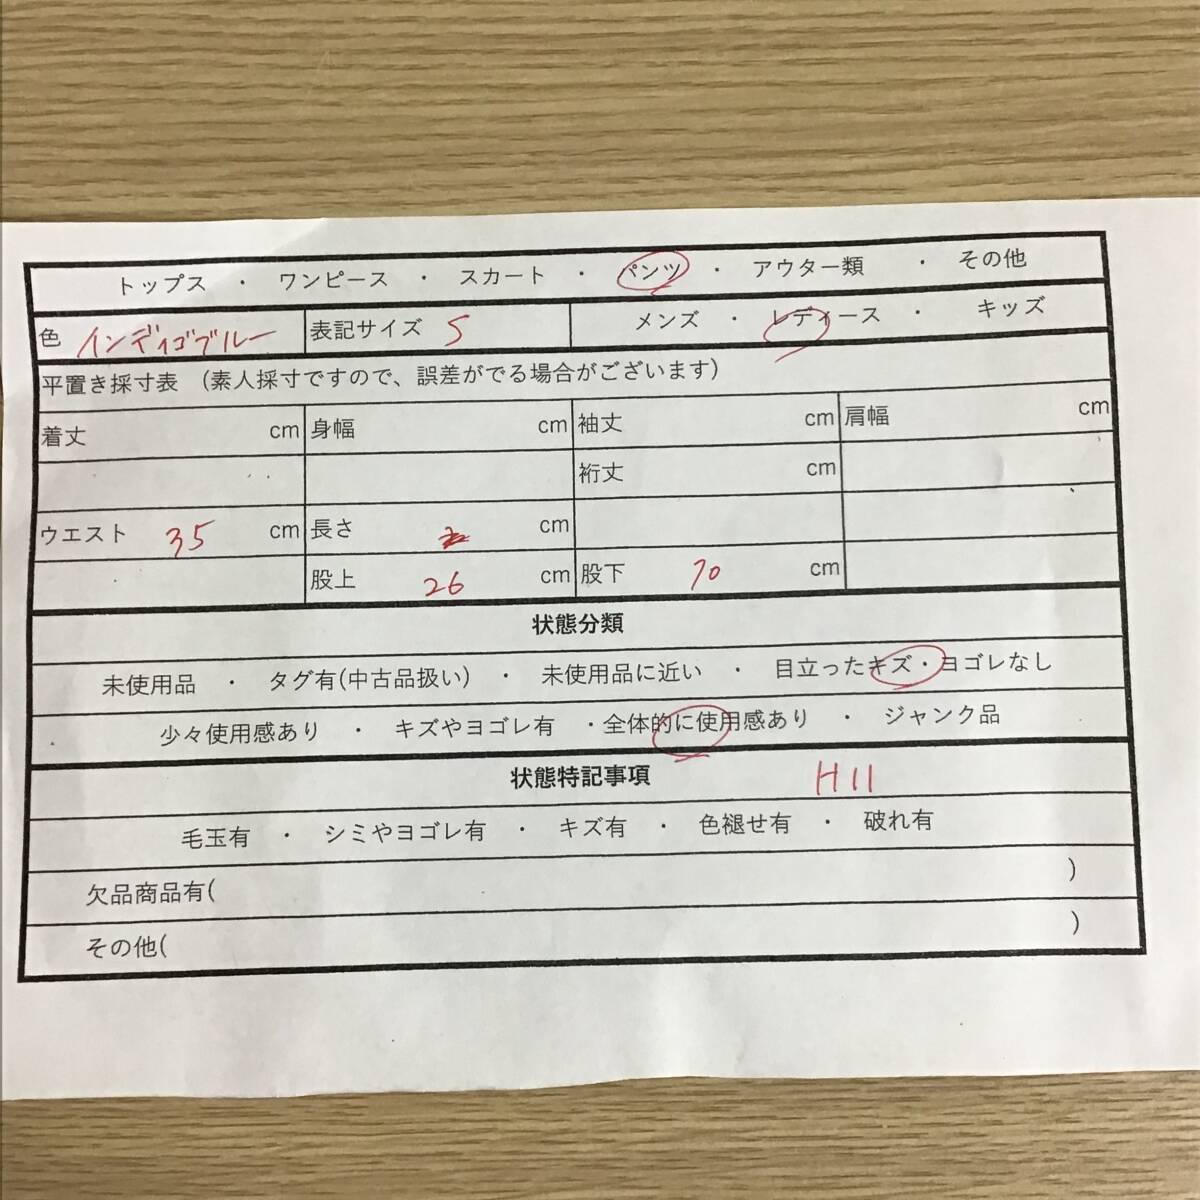 トップス ・ ワンピース ・ スカート ・ パンツ ・ アウター類 ・ その他
色 インディゴブルー 表記サイズ S メンズ ・ レディース ・ キッズ
平置き採寸表 (素人採寸ですので、誤差がでる場合がございます)
着丈 cm 身幅 cm 袖丈 cm 肩幅 cm
裄丈 cm
ウエスト 35 cm 長さ cm
股上 26 cm 股下 70 cm
状態分類
未使用品 ・ タグ有(中古品扱い) ・ 未使用品に近い ・ 目立ったキズ・ヨゴレなし
少々使用感あり ・ キズやヨゴレ有 ・全体的に使用感あり ・ ジャンク品
状態特記事項 H11
毛玉有 ・ シミやヨゴレ有 ・ キズ有 ・ 色褪せ有 ・ 破れ有
欠品商品有( )
その他( )